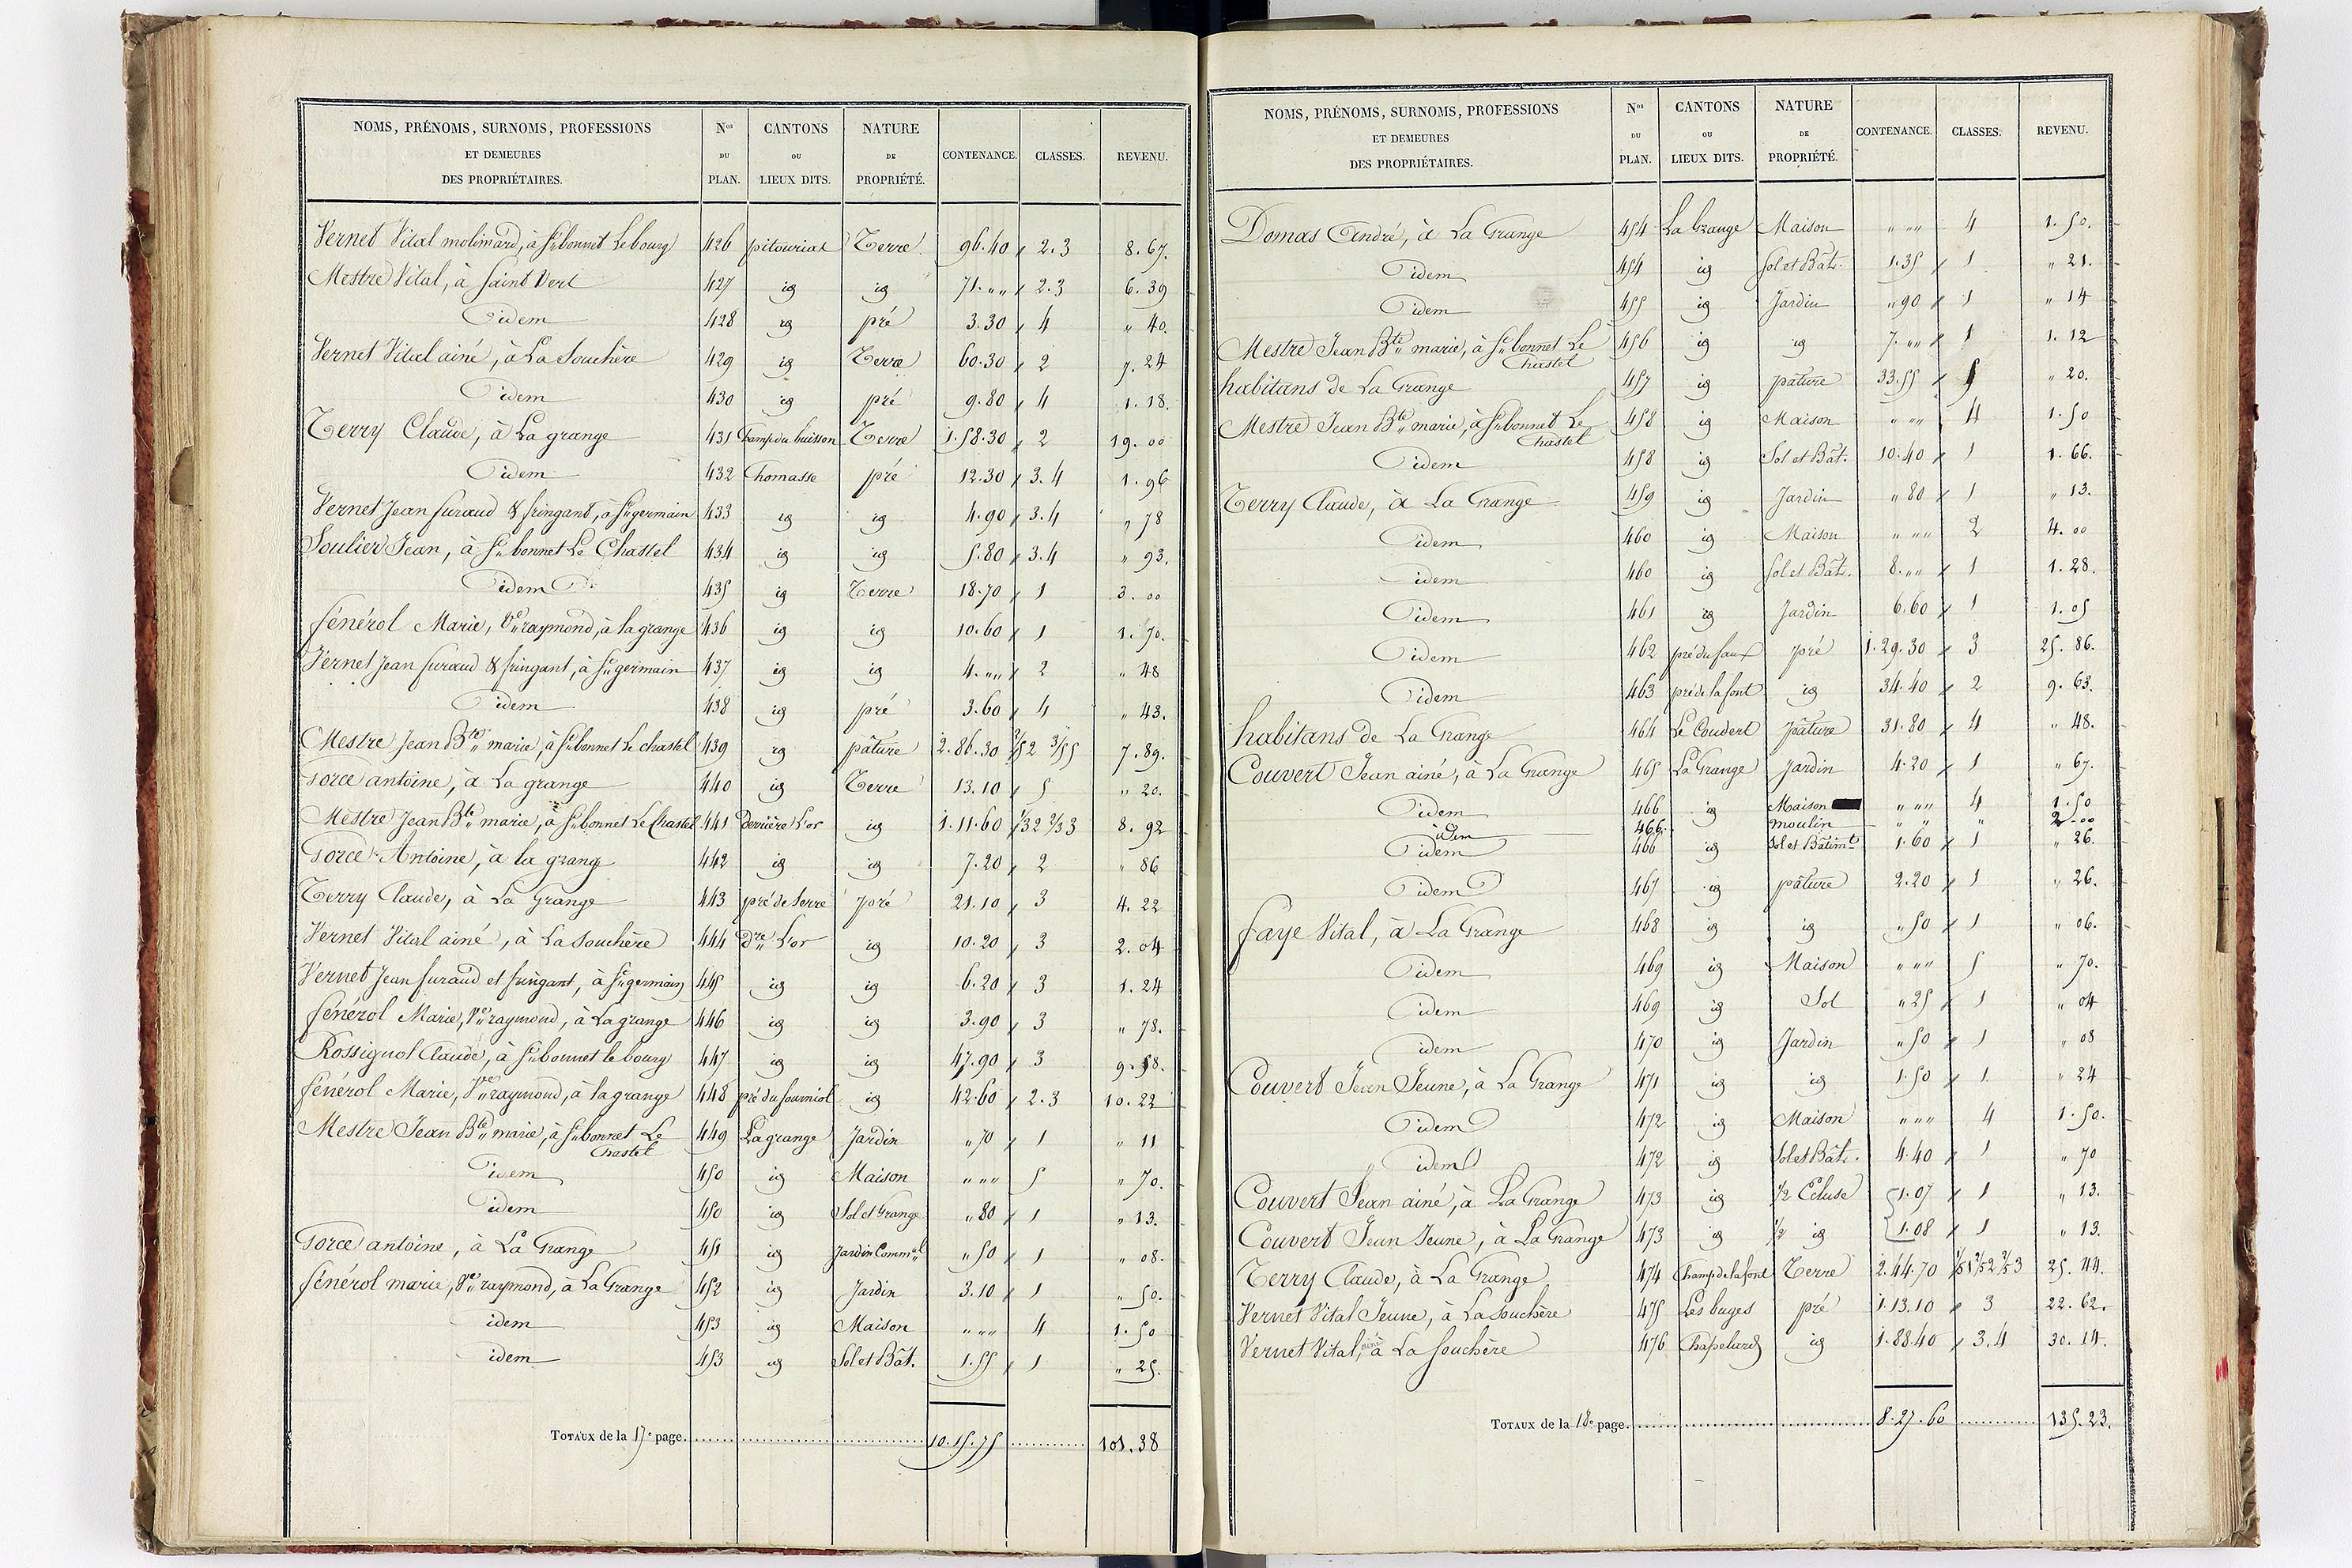 NOMS, PRÉNOMS, SURNOMS, PROFESSIONS ET DEMEURES DES PROPRIÉTAIRES. Nos DU PLAN. CANTONS OU LIEUX DITS. NATURE DE PROPRIÉTÉ. CONTENANCE. CLASSES. REVENU.
Vernet Vital molimard, à St bonnet Le bourg 426 pitouriat Terre 96.40 2.3 8.67.
Mestre Vital, à Saint Vert 427 id id 71. „ „ 2.3 6.39
idem 428 id pré 3.30 4 „ 40.
Vernet Vital ainé, à La Souchère 429 id Terre 60.30 2 7.24
idem 430 id pré 9.80 4 1.18.
Terry Claude, à La grange 431 Champ du buisson Terre 1.58.30 2 19.00
idem 432 Thomasse pré 12.30 3.4 1.96
Vernet Jean furaud & fringant, à St germain 433 id id 4.90 3.4 „ 78
Soulier Jean, à St bonnet Le Chastel 434 id id 5.80 3.4 „ 93.
idem 435 id Terre 18.70 1 3.00
fénérol Marie, Ve raymond, à la grange 436 id id 10.60 1 1.70.
Vernet Jean furaud & fringant, à St germain 437 id id 4. „ „ 2 „ 48
idem 438 id pré 3.60 4 „ 43.
Mestre Jean Bte marie, à St bonnet Le chastel 439 id pâture 2.86.30 2/5 2 3/5 5 7.89.
Torce antoine, à La grange 440 id Terre 13.10 5 „ 20.
Mestre Jean Bte marie, à St bonnet Le Chastel 441 Derrière L'or id 1.11.60 1/3 2 2/3 3 8.92
Torce Antoine, à la grange 442 id id 7.20 2 „ 86
Terry Claude, à La Grange 443 pré de serre pré 21.10 3 4.22
Vernet Vital ainé, à La Souchère 444 dre L'or id 10.20 3 2.04
Vernet Jean furaud et fringant, à St germain 445 id id 6.20 3 1.24
fénérol Marie, Ve raymond, à La grange 446 id id 3.90 3 „ 78.
Rossignol Claude, à St bonnet le bourg 447 id id 47.90 3 9.58.
fénérol Marie, Ve raymond, à la grange 448 pré du fourniol id 42.60 2.3 10.22
Mestre Jean Bte marie, à St bonnet Le Chastel 449 La grange Jardin „ 70 1 „ 11
idem 450 id Maison „ „ „ 5 „ 70.
idem 450 id Sol et Grange „ 80 1 „ 13.
Torce antoine, à La Grange 451 id Jardin Commal „ 50 1 „ 08.
fénérol marie, Ve raymond, à La Grange 452 id Jardin 3.10 1 „ 50.
idem 453 id Maison „ „ „ 4 1.50
idem 453 id Sol et Bât. 1.55 1 „ 25.
TOTAUX de la 17e page. 10.15.75 101.38
NOMS, PRÉNOMS, SURNOMS, PROFESSIONS ET DEMEURES DES PROPRIÉTAIRES. Nos DU PLAN. CANTONS OU LIEUX DITS. NATURE DE PROPRIÉTÉ. CONTENANCE. CLASSES. REVENU.
Domas André, à La Grange 454 La Grange Maison „ „ „ 4 1.50.
idem 454 id Sol et Bât. 1.35 1 „ 21.
idem 455 id Jardin „ 90 1 „ 14
Mestre Jean Bte marie, à St bonnet Le Chastel 456 id id 7. „ „ 1 1.12
habitans de La Grange 457 id pâture 33.55 5 „ 20.
Mestre Jean Bte marie, à St bonnet Le Chastel 458 id Maison „ „ „ 4 1.50
idem 458 id Sol et Bât. 10.40 1 1.66.
Terry Claude, à La Grange 459 id Jardin „ 80 1 „ 13.
idem 460 id Maison „ „ „ 2 4.00
idem 460 id Sol et Bât. 8. „ „ 1 1.28.
idem 461 id Jardin 6.60 1 1.05
idem 462 pré du faux pré 1.29.30 3 25.86.
idem 463 pré de la font id 34.40 2 9.63.
habitans de La Grange 464 Le Coudert pâture 31.80 4 „ 48.
Couvert Jean ainé, à La Grange 465 La Grange Jardin 4.20 1 „ 67.
idem 466 id Maison „ „ „ 4 1.50
idem 466 moulin „ „ „ 2.00
idem 466 id Sol et Bâtimt 1.60 1 „ 26.
idem 467 id pâture 2.20 1 „ 26.
faye Vital, à La Grange 468 id id „ 50 1 „ 06.
idem 469 id Maison „ „ „ 5 „ 70.
idem 469 id Sol „ 25 1 „ 04
idem 470 id Jardin „ 50 1 „ 08
Couvert Jean Jeune, à La Grange 471 id id 1.50 1 „ 24
idem 472 id Maison „ „ „ 4 1.50.
idem 472 id Sol et Bât. 4.40 1 „ 70
Couvert Jean ainé, à La Grange 473 id 1/2 Ecluse 1.07 1 „ 13.
Couvert Jean Jeune, à La Grange 473 id 1/2 id 1.08 1 „ 13.
Terry Claude, à La Grange 474 Champ de la font Terre 2.44.70 1/5 1 2/5 2 2/5 3 25.44.
Vernet Vital Jeune, à La Souchère 475 Les buges pré 1.13.10 3 22.62.
Vernet Vital, à La Souchère 476 Chapelard id 1.88.40 3.4 30.14.
TOTAUX de la 18e page. 8.27.60 135.23.